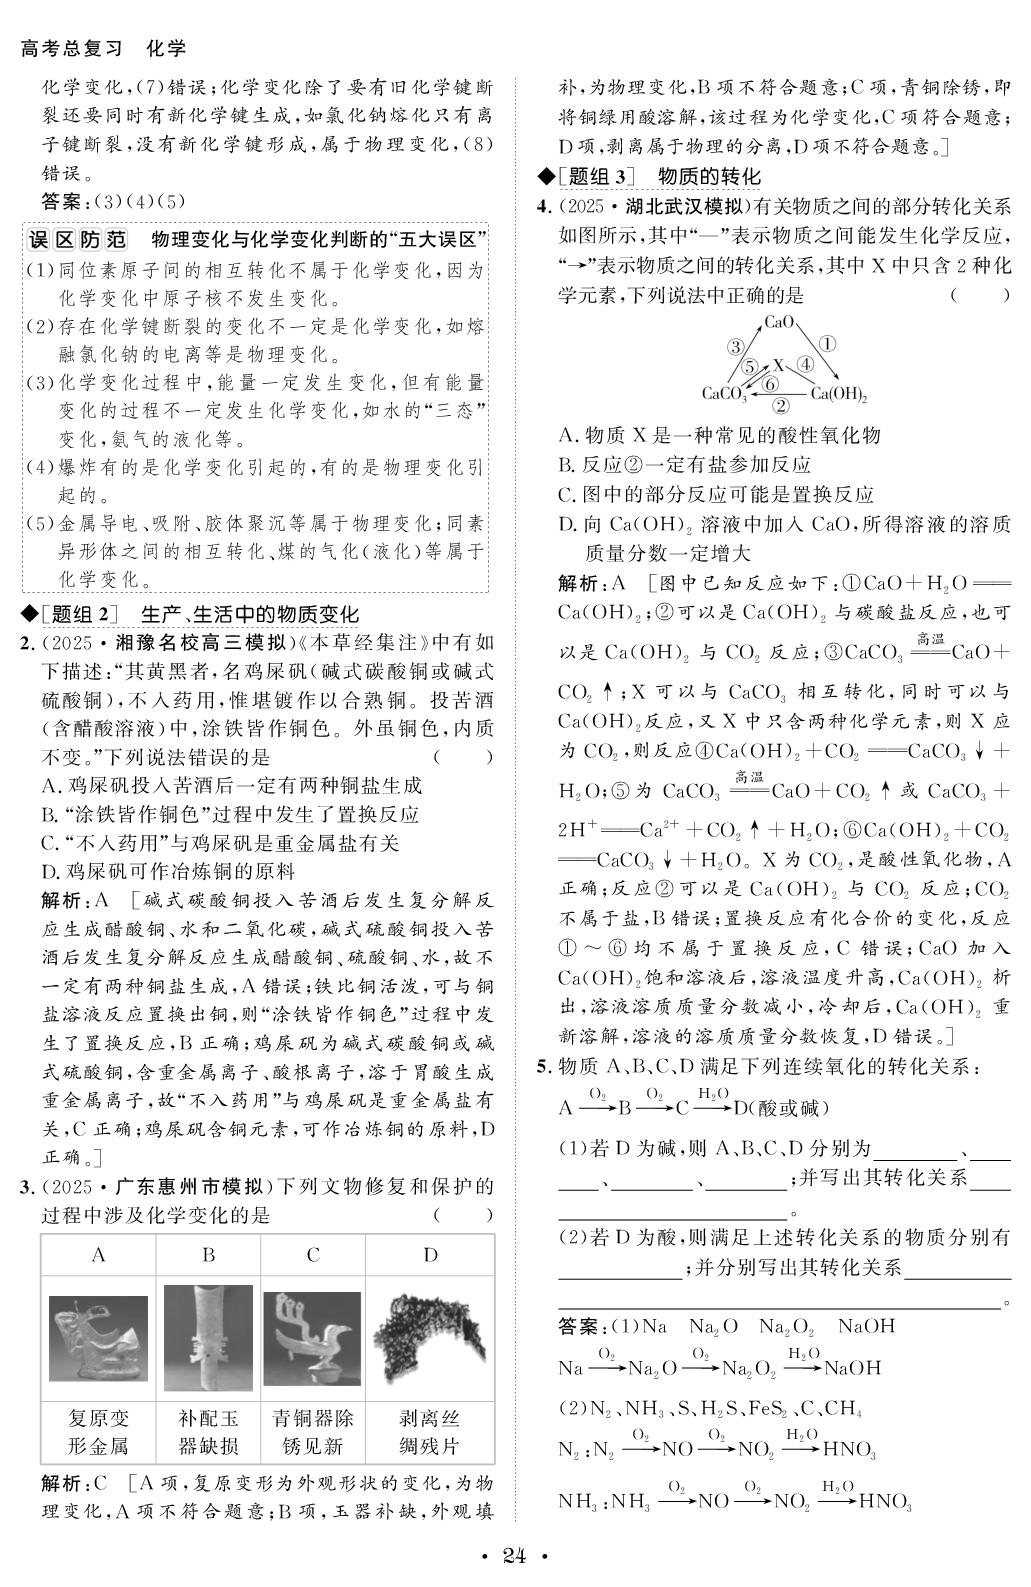 高考总复习 化学
化学变化,(7)错误;化学变化除了要有旧化学键断
裂还要同时有新化学键生成,如氯化钠熔化只有离
子键断裂,没有新化学键形成,属于物理变化,(8)
错误。
答案:(3)(4)(5)
误区防范 物理变化与化学变化判断的“五大误区”
(1)同位素原子间的相互转化不属于化学变化,因为
化学变化中原子核不发生变化。
(2)存在化学键断裂的变化不一定是化学变化,如熔
融氯化钠的电离等是物理变化。
(3)化学变化过程中,能量一定发生变化,但有能量
变化的过程不一定发生化学变化,如水的“三态”
变化,氨气的液化等。
(4)爆炸有的是化学变化引起的,有的是物理变化引
起的。
(5)金属导电、吸附、胶体聚沉等属于物理变化;同素
异形体之间的相互转化、煤的气化(液化)等属于
化学变化。
◆[题组 2] 生产、生活中的物质变化
2.(2025·湘豫名校高三模拟)《本草经集注》中有如
下描述:“其黄黑者,名鸡屎矾(碱式碳酸铜或碱式
硫酸铜),不入药用,惟堪镀作以合熟铜。投苦酒
(含醋酸溶液)中,涂铁皆作铜色。外虽铜色,内质
不变。”下列说法错误的是 ( )
A. 鸡屎矾投入苦酒后一定有两种铜盐生成
B. “涂铁皆作铜色”过程中发生了置换反应
C. “不入药用”与鸡屎矾是重金属盐有关
D. 鸡屎矾可作冶炼铜的原料
解析:A [碱式碳酸铜投入苦酒后发生复分解反
应生成醋酸铜、水和二氧化碳,碱式硫酸铜投入苦
酒后发生复分解反应生成醋酸铜、硫酸铜、水,故不
一定有两种铜盐生成,A 错误;铁比铜活泼,可与铜
盐溶液反应置换出铜,则“涂铁皆作铜色”过程中发
生了置换反应,B 正确;鸡屎矾为碱式碳酸铜或碱
式硫酸铜,含重金属离子、酸根离子,溶于胃酸生成
重金属离子,故“不入药用”与鸡屎矾是重金属盐有
关,C 正确;鸡屎矾含铜元素,可作冶炼铜的原料,D
正确。]
3.(2025·广东惠州市模拟)下列文物修复和保护的
过程中涉及化学变化的是 ( )
A B C D
复原变 补配玉 青铜器除 剥离丝
形金属 器缺损 锈见新 绸残片
解析:C [A 项,复原变形为外观形状的变化,为物
理变化,A 项不符合题意;B 项,玉器补缺,外观填
补,为物理变化,B 项不符合题意;C 项,青铜除锈,即
将铜绿用酸溶解,该过程为化学变化,C 项符合题意;
D 项,剥离属于物理的分离,D 项不符合题意。]
◆[题组 3] 物质的转化
4.(2025·湖北武汉模拟)有关物质之间的部分转化关系
如图所示,其中“—”表示物质之间能发生化学反应,
“→”表示物质之间的转化关系,其中 X 中只含 2 种化
学元素,下列说法中正确的是 ( )
CaO
③ ①
⑤ X ④
⑥
CaCO₃ Ca(OH)₂
②
A. 物质 X 是一种常见的酸性氧化物
B. 反应②一定有盐参加反应
C. 图中的部分反应可能是置换反应
D. 向 Ca(OH)₂ 溶液中加入 CaO,所得溶液的溶质
质量分数一定增大
解析:A [图中已知反应如下:①CaO+H₂O══
Ca(OH)₂;②可以是 Ca(OH)₂ 与碳酸盐反应,也可
以是 Ca(OH)₂ 与 CO₂ 反应;③CaCO₃ ══高温 CaO+
CO₂↑;X 可以与 CaCO₃ 相互转化,同时可以与
Ca(OH)₂反应,又 X 中只含两种化学元素,则 X 应
为 CO₂,则反应④Ca(OH)₂+CO₂ ══CaCO₃↓+
H₂O;⑤为 CaCO₃ ══高温 CaO+CO₂↑或 CaCO₃+
2H⁺══Ca²⁺+CO₂↑+H₂O;⑥Ca(OH)₂+CO₂
══CaCO₃↓+H₂O。X 为 CO₂,是酸性氧化物,A
正确;反应②可以是 Ca(OH)₂ 与 CO₂ 反应;CO₂
不属于盐,B 错误;置换反应有化合价的变化,反应
①~⑥均不属于置换反应,C 错误;CaO 加入
Ca(OH)₂饱和溶液后,溶液温度升高,Ca(OH)₂ 析
出,溶液溶质质量分数减小,冷却后,Ca(OH)₂ 重
新溶解,溶液的溶质质量分数恢复,D 错误。]
5. 物质 A、B、C、D 满足下列连续氧化的转化关系:
A —O₂→B —O₂→C —H₂O→D(酸或碱)
(1)若 D 为碱,则 A、B、C、D 分别为______、____
____、______、______;并写出其转化关系____
________________。
(2)若 D 为酸,则满足上述转化关系的物质分别有
__________;并分别写出其转化关系________
________________________________。
答案:(1)Na Na₂O Na₂O₂ NaOH
Na —O₂→Na₂O —O₂→Na₂O₂ —H₂O→NaOH
(2)N₂、NH₃、S、H₂S、FeS₂、C、CH₄
N₂:N₂ —O₂→NO —O₂→NO₂ —H₂O→HNO₃
NH₃:NH₃ —O₂→NO —O₂→NO₂ —H₂O→HNO₃
· 24 ·